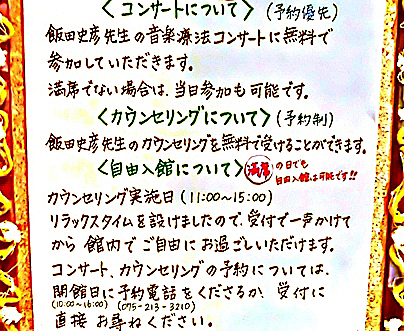 〈コンサートについて〉(予約優先)
飯田史彦先生の音楽療法コンサートに無料で
参加していただきます。
満席でない場合は、当日参加も可能です。
〈カウンセリングについて〉(予約制)
飯田史彦先生のカウンセリングを無料で受けることができます。
〈自由入館について〉満席の日でも
自由入館は可能です!!
カウンセリング実施日(11:00〜15:00)
リラックスタイムを設けましたので、受付で一声かけて
から 館内でご自由にお過ごしいただけます。
コンサート、カウンセリングの予約については、
開館日に予約電話をくださるか、受付に
(10:00〜16:00) (075-213-3210)
直接お尋ねください。